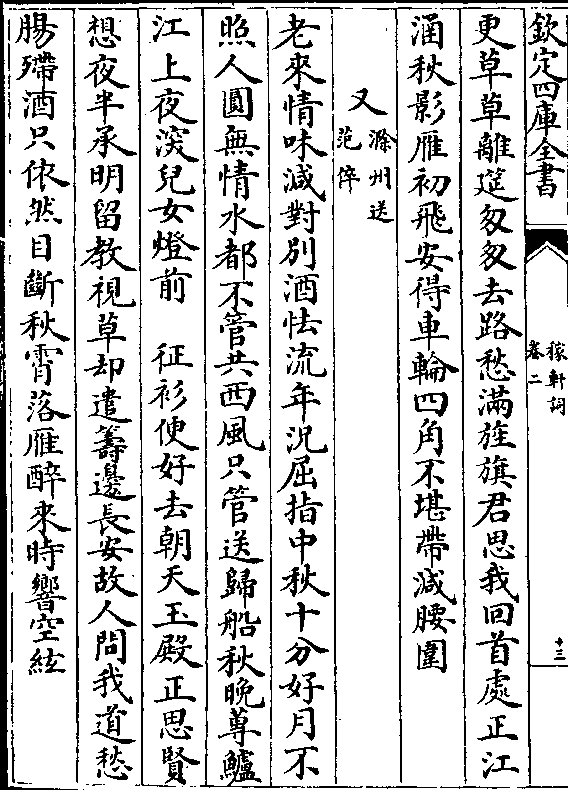 欽定四庫全書
稼軒詞
卷二
十三
更草草離筵匆匆去路愁滿旌旗君思我回首處正江
涵秋影雁初飛安得車輪四角不堪帶減腰圍
又
滁州送
范倅
老來情味減對別酒怯流年況屈指中秋十分好月不
照人圓無情水都不管共西風只管送歸船秋晚蓴鱸
江上夜深兒女燈前　征衫便好去朝天玉殿正思賢
想夜半承明留教視草却遣籌邊長安故人問我道愁
腸殢酒只依然目斷秋霄落雁醉來時響空絃